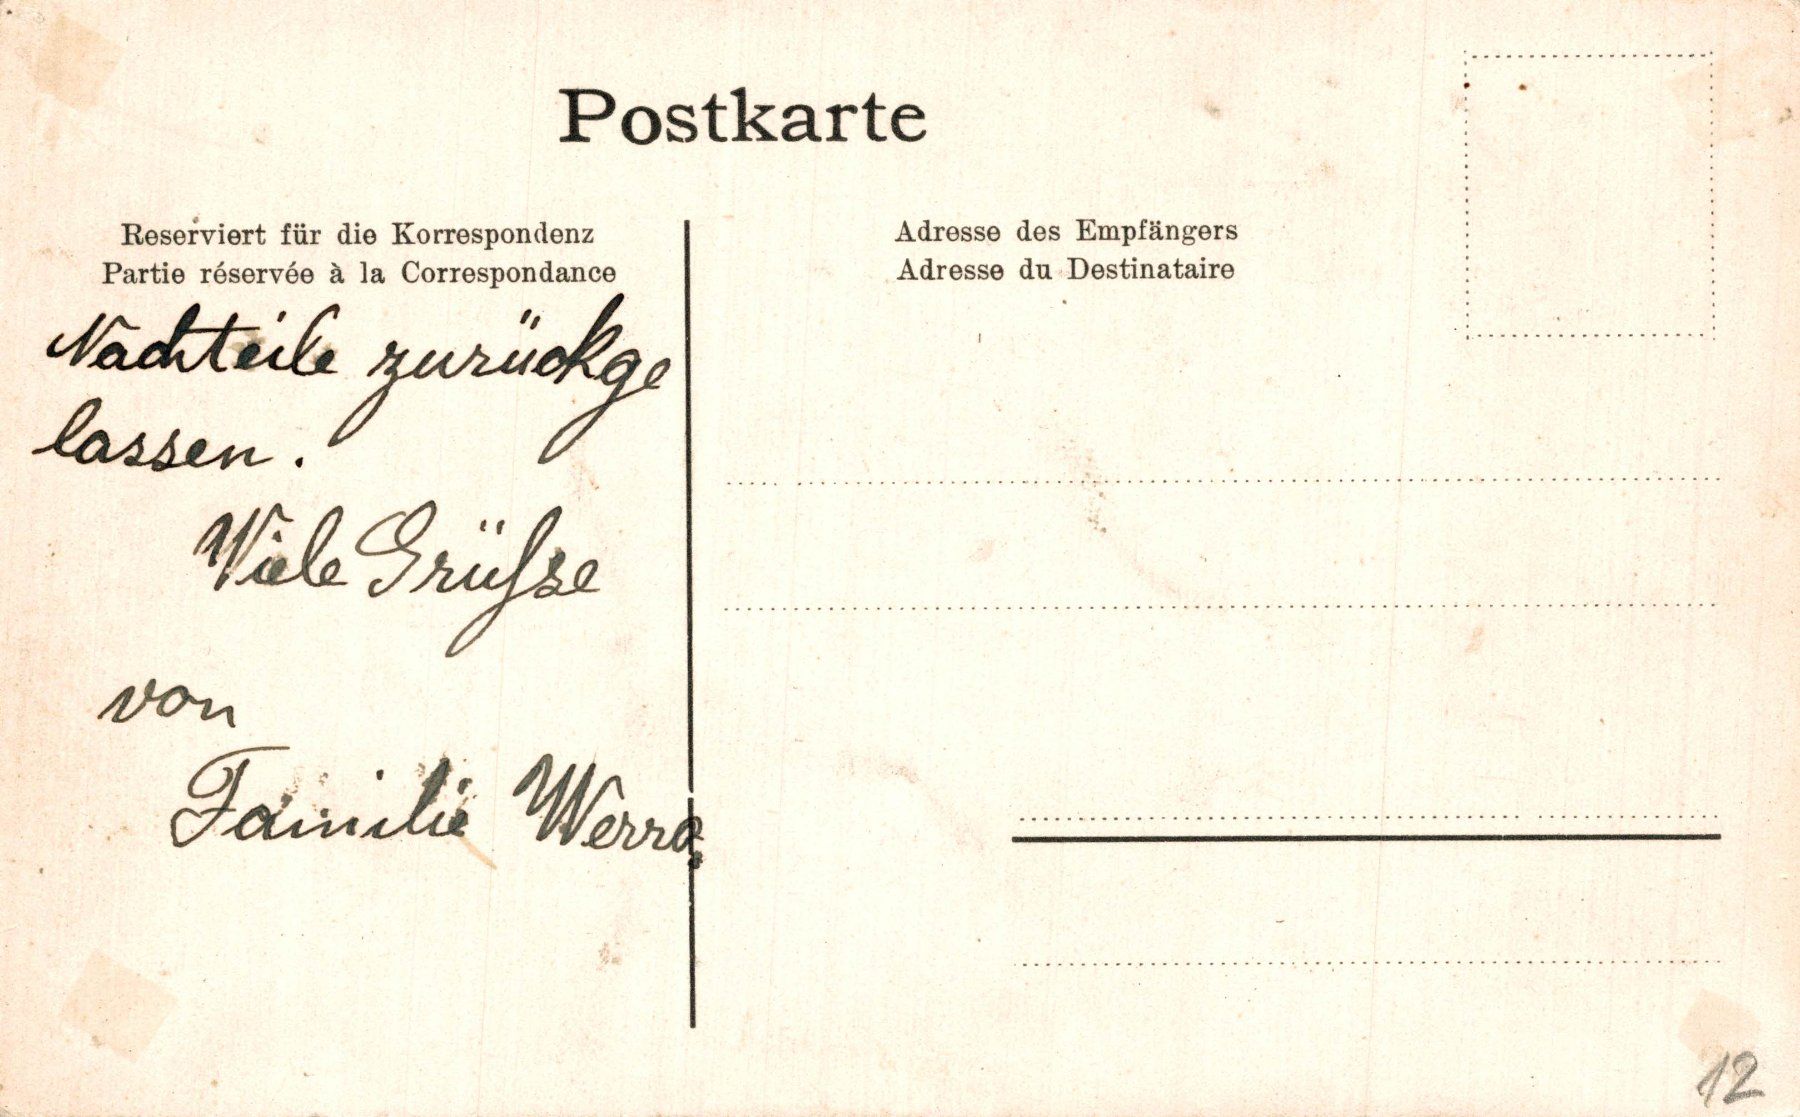 Postkarte
Reserviert für die Korrespondenz
Partie réservée à la Correspondance
Nachteile zurückge
lassen.
Viele Grüße
von
Familie Werra.
Adresse des Empfängers
Adresse du Destinataire
12